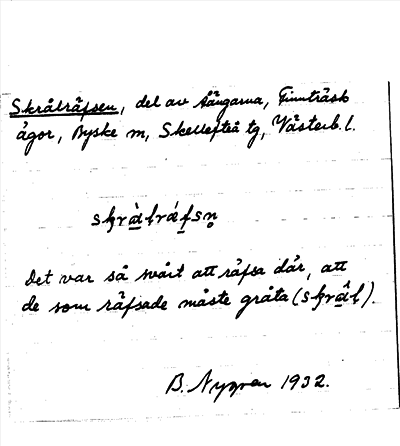 Skrålräfsen, del av ängarna, Finnträsk
ägor, Byske sn, Skellefteå tg, Västerb. l.
skràlráfsn̥
Det var så svårt att räfsa där, att
de som räfsade måste gråta (skrâl).
B. Nygren 1932.